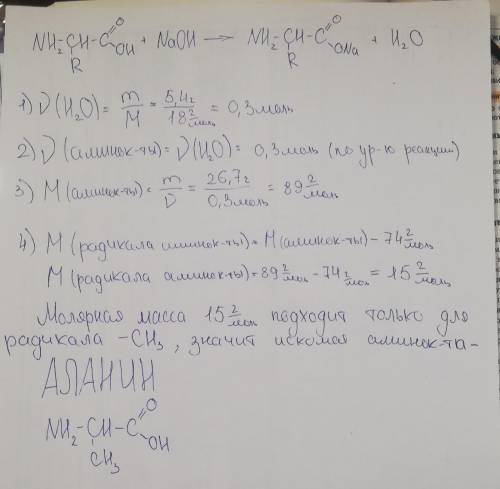 NH₂-CH-C=O OH + NaOH → NH₂-CH-C=O ONa + H₂O
R R
1) ν(H₂O) = m/M = 5,4г/18 г/моль = 0,3 моль
2) ν(аминок-ты) = ν(H₂O) = 0,3 моль (по ур-ю реакции)
3) M(аминок-ты) = m/ν = 26,7г/0,3моль = 89 г/моль
4) M(радикала аминок-ты) = M(аминок-ты) - 74 г/моль
M(радикала аминок-ты) = 89 г/мол - 74 г/мол = 15 г/моль
Молярная масса 15 г/мол подходит только для
радикала -CH₃, значит искомая аминок-та-
АЛАНИН
NH₂-CH-C=O OH
CH₃